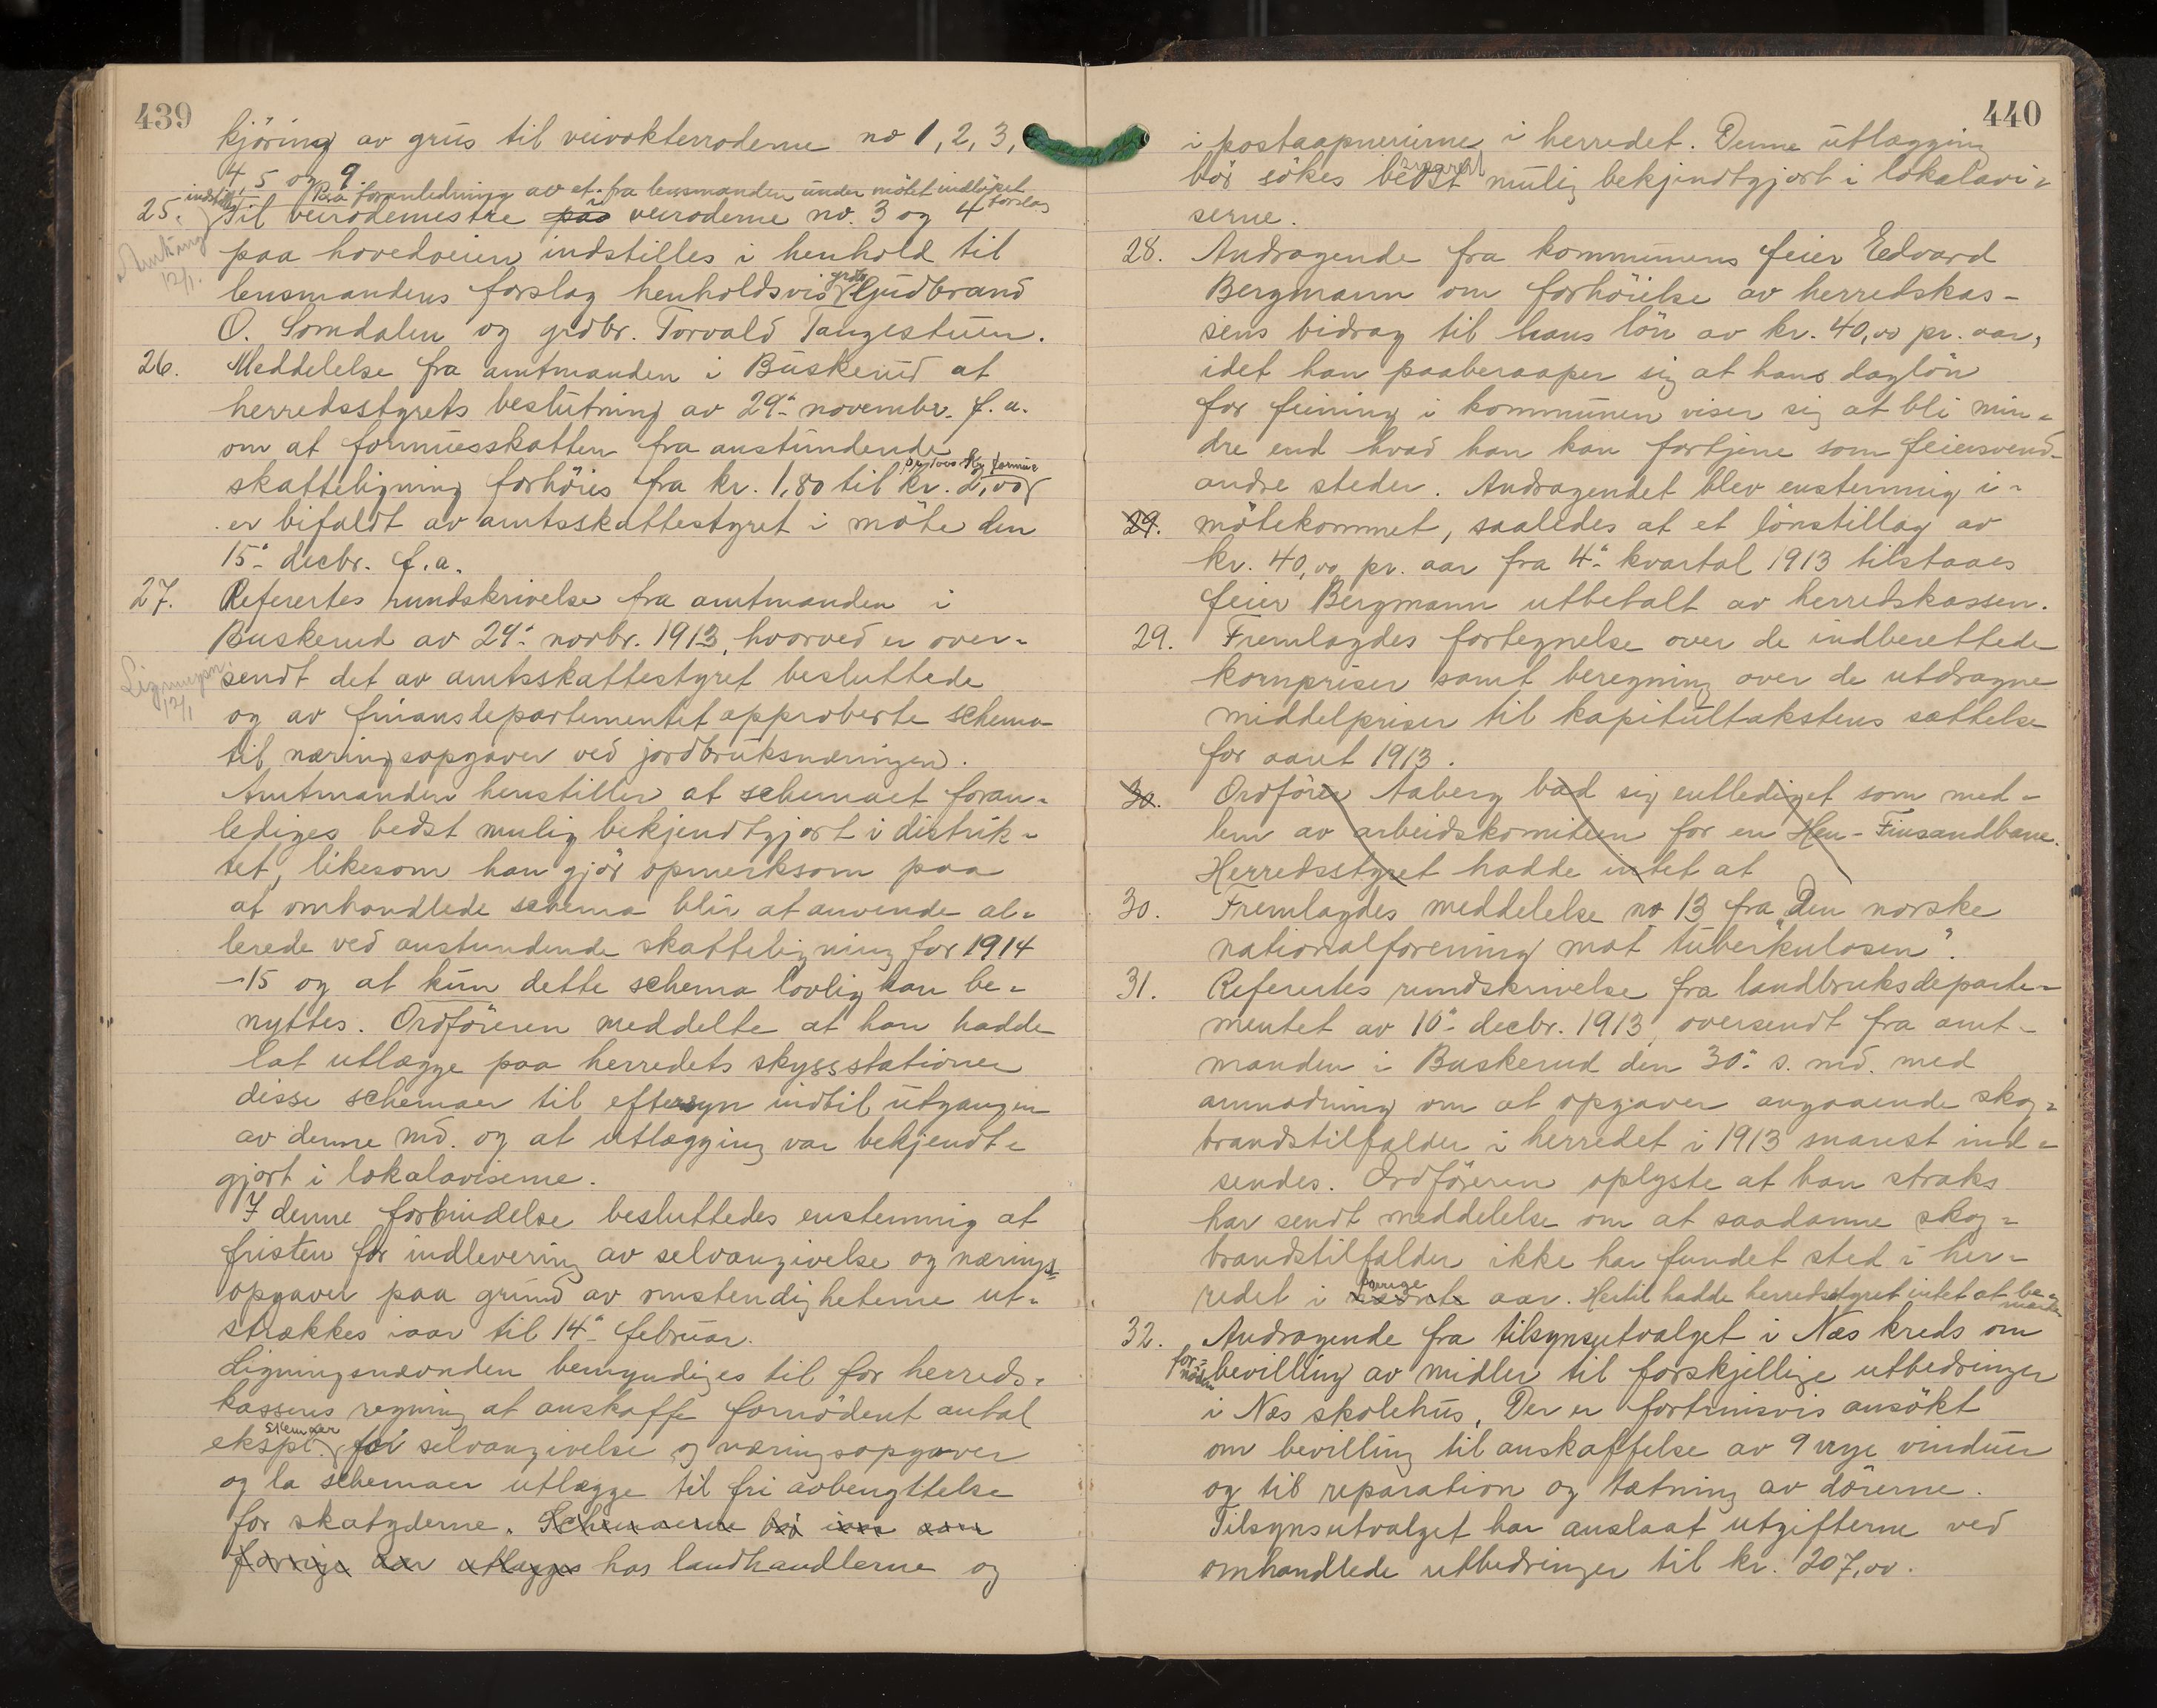 439
kjöring av grus til veivokterroderne no 1, 2, 3,
4, 5 og 9.
indstilles Paa foranledning av et fra lensmanden under mötet indlöpet forslag
25. Til veirodemestre paa i veiroderne no. 3 og 4
Amting 12/1.
paa hovedveien indstilles i henhold til
lensmandens forslag henholdsvis grdbr. Gudbrand
O. Somdalen og grdbr. Torvald Tangestuen.
26. Meddelelse fra amtmanden i Buskerud at
herredsstyrets beslutning av 29de novembr. f. a.
om at formuesskatten fra anstundende
skatteligning forhöies fra kr. 1,80 til kr. 2,00 pr. 1000 kr. formue
er bifaldt av amtsskattestyret i möte den
15de decbr. f. a.
27. Refertes rundskrivelse fra amtmanden i
Buskerud av 24de novbr. 1913, hvorved er over-
sendt det av amtsskattestyret besluttede
12/1
og av finansdepartementet approberte schema
til næringsopgaver ved jordbruksnæringen.
Amtmanden henstiller at schemaet foran-
lediges bedst mulig bekjendtgjort i distrik-
tet, likesom han gjör opmerksom paa
at omhandlede schema blir at anvende al-
lerede ved anstundende skatteligning for 1914
-15 og at kun dette schema lovlig kan be-
nyttes. Ordföreren meddelte at han hadde
lat utlægge paa herredets skyssstationer
disse schemaer til eftersyn indtil utgangen
av denne md. og at utlægging var bekjendt-
gjort i lokalaviserne.
I denne forbindelse besluttedes enstemmig at
fristen for indlevering av selvangivelse og nærings-
opgaver paa grund av omstendigheterne ut-
strækkes iaar til 14de februar.
Ligningsnævnden bemyndiges til for herreds-
kassens regning at anskaffe fornödent antal
ekspl. skemaer for selvangivelse og næringsopgaver
og la schemaer utlægge til fri avbenyttelse
for skatyderne. Schemaerne bör iaar som
forrige aar utlægges hos landhandlerne og
440
i postaapnerierne i herredet. Denne utlægging
bör sökes bedst mulig bekjendtgjort i lokalavi-
serne.
28. Andragende fra kommunens feier Edvard
Bergmann om forhöielse av herredskas-
sens bidrag til hans lön av kr. 40,00 pr. aar,
idet han paaberaaper sig at hans daglön
for feining i kommunen viser sig at bli min-
dre end hvad han kan fortjene som feiersvend
andre steder. Andragendet blev enstemmig i-
29. mötekommet, saaledes at et lönstillag av
kr. 40,00 pr. aar fra 4de kvartal 1913 tilstaaes
feier Bergmann utbetalt av herredskassen.
29. Fremlagdes fortegnelse over de indberettede
kornpriser samt beregning over de utdragne
middelpriser til kapitulstakstens sættelse
for aaret 1913.
30. Ordförer Aaberg bad sig entlediget som med-
lem av arbeidskomiteen for en Hen-Finsandbane.
Herredsstyret hadde intet at
30. Fremlagdes meddelelse no 13 fra "Den norske
nationalforening mot tuberkulosen".
31. Refertes rundskrivelse fra landbruksdeparte-
mentet av 10de decbr. 1913, oversendt fra amt-
manden i Buskerud den 30de s. md. med
anmodning om at opgaver angaaende skog-
brandstilfalder i herredet i 1913 snarest ind-
sendes. Ordföreren oplyste at han straks
har sendt meddelelse om at saadanne skog-
brandstilfalder ikke har fundet sted i her-
redet i nævnte forrige aar. Hertil hadde herredsstyret intet at be-
merke
32. Andragende fra tilsynsutvalget i Næs kreds om
for-
nöden bevilling av midler til forskjellige utbedringer
i Næs skolehus. Der er fortrinsvis ansökt
om bevilling til anskaffelse av 9 nye vinduer
og til reparation og tætning av dörerne.
Tilsynsutvalget har anslaat utgifterne ved
omhandlede utbedringer til kr. 207,00.